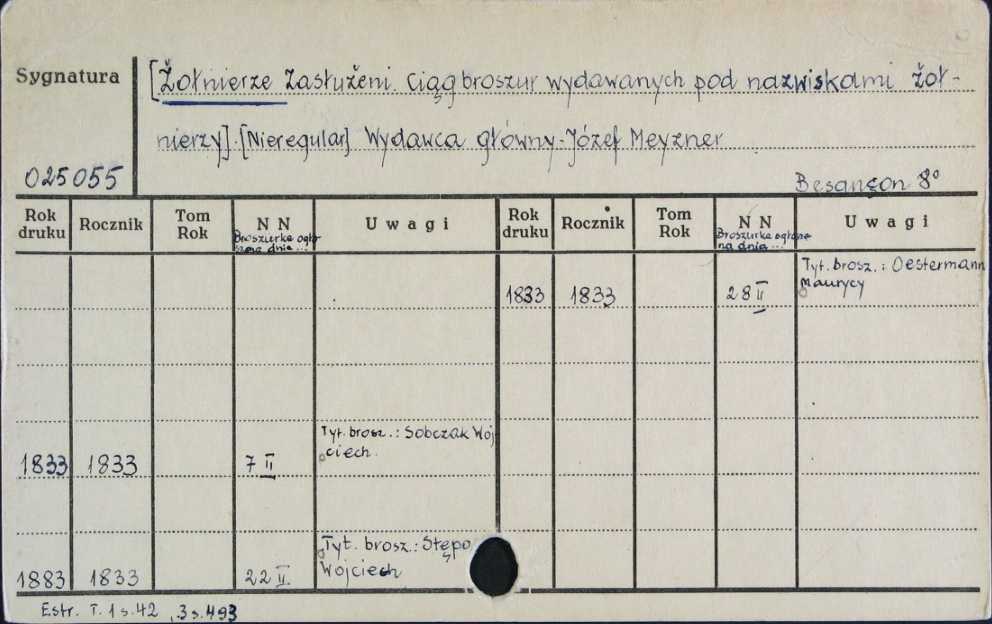 Sygnatura
[Żołnierze Zasłużeni. Ciąg broszur wydawanych pod nazwiskami żoł-
nierzy]. [Nieregular] Wydawca główny-Józef Meyzner
025055
Besançon 8°
Rok druku Rocznik Tom Rok N N Broszurka ogło szona dnia... Uwagi Rok druku Rocznik Tom Rok N N Broszurka ogłoszona na dnia... Uwagi
1833 1833 28 II Tyt. brosz.: Oestermann Maurycy
1833 1833 7 II Tyt. brosz.: Sobczak Woj ciech.
1883 1833 22 II. Tyt. brosz.: Stępo Wojciech
Estr. T. 1 s. 42, 3 s. 493